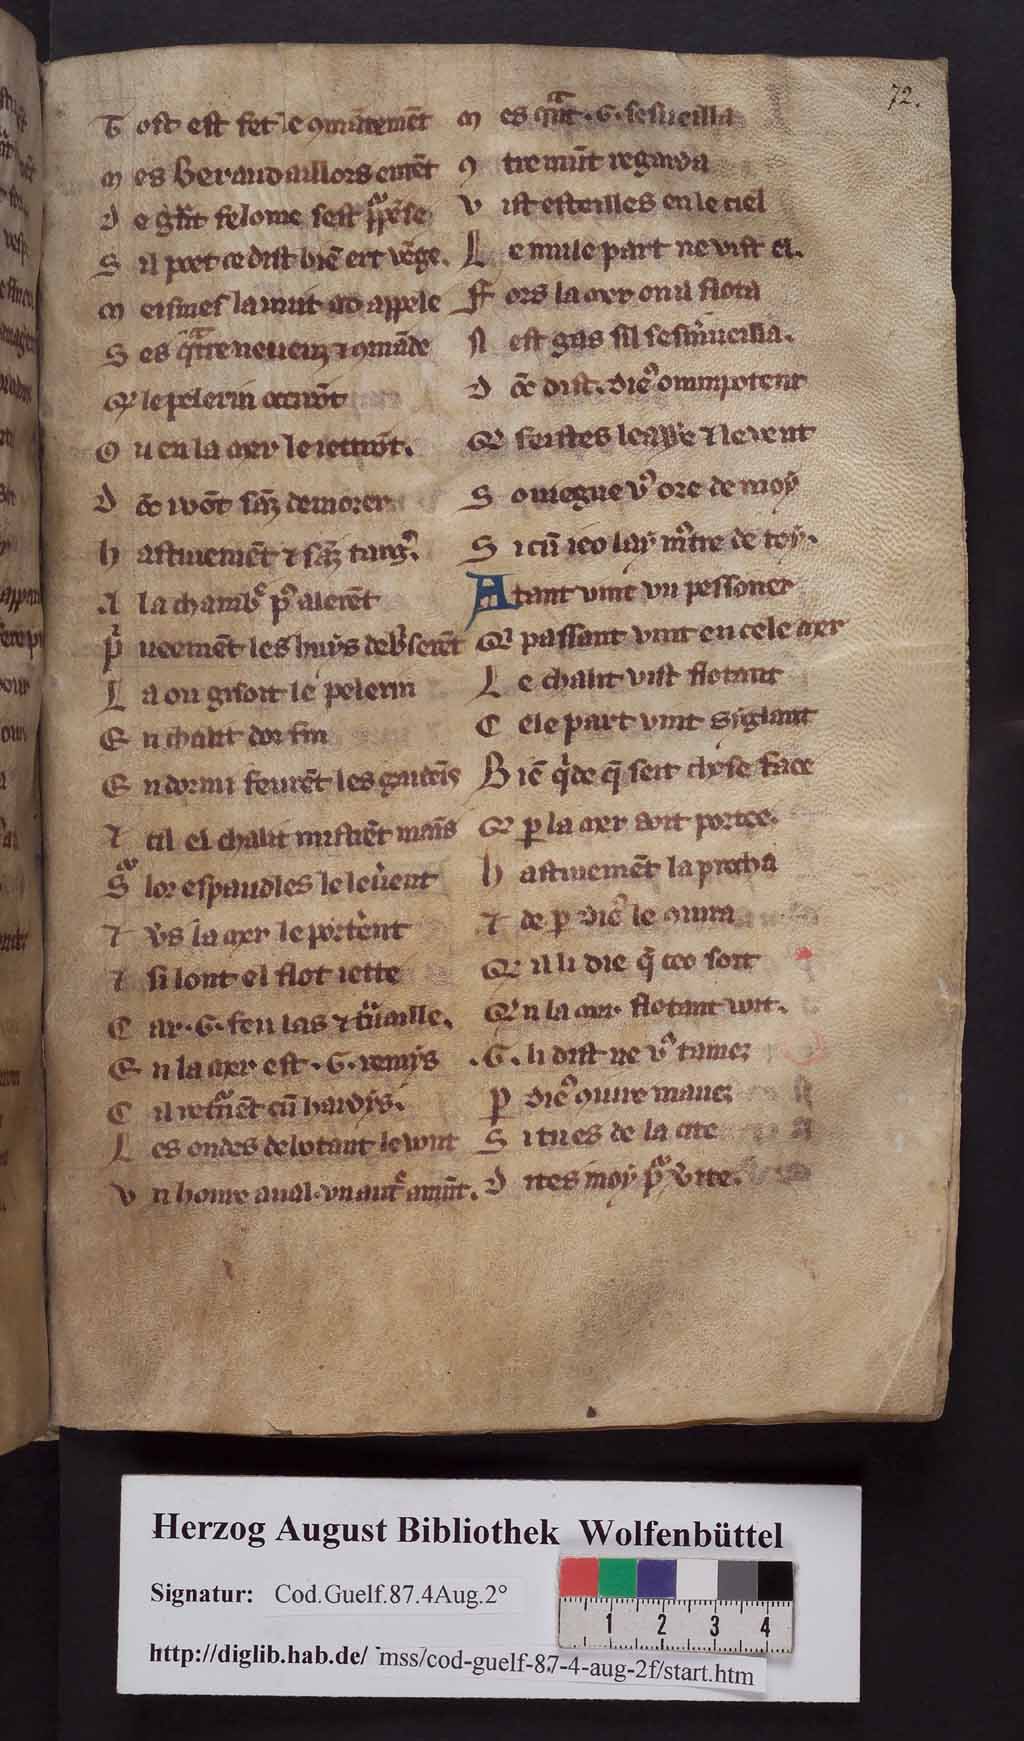 72.
Tost est fet le ꝯmandemēt
Mes Beraud aillors entēt
De gͣnt felonie sest pͬpēse
Sil poet ce dist biē ert vēge.
Meismes la nuit ad appele
Ses qͣtre neueuz ⁊ ꝯmāde
Qͥ le pelerin occirōt
Ou en la mer le iettrōt.
Dōc i vōt sāz demorer
Hastiuemēt ⁊ sāz targͬ
A la chambͬ pͬ alerēt
Pͥueemēt les huys debͬserēt
La ou gisoit le pelerin
En chalit dor fin
Endormi feurēt les gardeīs
⁊ cil el chalit mistrēt mains
Sͬ lor espaudles le leuͬent
⁊ vͬs la mer le portͬent
⁊ si lont el flot iette
Car .G. feu las ⁊ tͬuaille.
En la mer est .G. remys
Cil retͬnēt cū hardys.
Les ondes debotant le vont
Vn home aual. vn autͬ amūt.
Mes qͣnt .G. sesueilla
ꝯtremūt regarda
Vist esteilles en le ciel
De nule part ne vist el.
Fors la mer ou il flota
Nest gas sil sesmͬueilla.
Dōc dist. dieˀ omnipotent
Qͥ feistes leawe ⁊ le vent
Souiegne vˀ ore de moy
Si cū ieo lay mͬtre de toy.
Atant vint vn pessoner
Qͥ passant vint en cele mer
Le chalit vist flotant
Cele part vint siglant
Biē qͥde qͤ seit chose faee
Qͥ ꝑ la mer soit portee.
Hastiuemēt laprocha
⁊ de ꝑ dieˀ le ꝯiura
Qͥl li die qͤ ceo soit
Qͥn la mer flotant voit.
.G. li dist ne vˀ tamez
ꝑ dieˀ ꝯiure mauez
Si tu es de la cite
Dites moy pͬ vͬite.
Herzog August Bibliothek Wolfenbüttel
Signatur: Cod.Guelf.87.4Aug.2°
1 2 3 4
http://diglib.hab.de/ mss/cod-guelf-87-4-aug-2f/start.htm